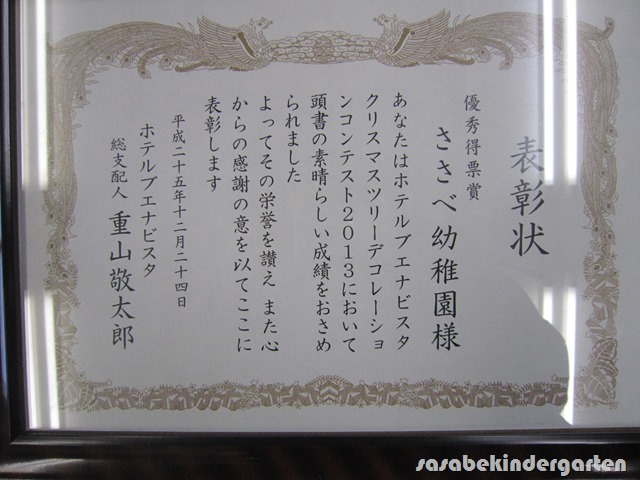 表彰状
優秀得票賞
ささべ幼稚園様
あなたはホテルブエナビスタ
クリスマスツリーデコレーショ
ンコンテスト2013において
頭書の素晴らしい成績をおさめ
られました
よってその栄誉を讃え また心
からの感謝の意を以てここに
表彰します
平成二十五年十二月二十四日
ホテルブエナビスタ
総支配人 重山敬太郎
sasabekindergarten